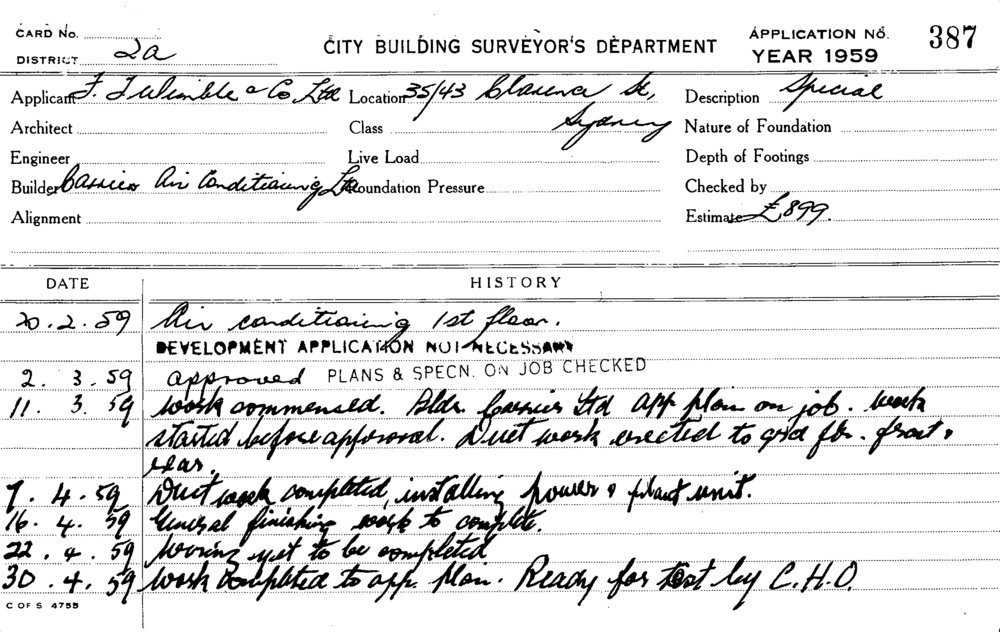 CARD No.
DISTRICT 2a
CITY BUILDING SURVEYOR'S DEPARTMENT
APPLICATION No. 387
YEAR 1959
Applicant F. T. Wimble & Co. Ltd Location 35/43 Clarence St, Description Special
Architect Class Sydney Nature of Foundation
Engineer Live Load Depth of Footings
Builder Carrier Air Conditioning Ltd Foundation Pressure Checked by
Alignment Estimate £899.
DATE HISTORY
20.2.59 Air conditioning 1st floor.
DEVELOPMENT APPLICATION NOT NECESSARY
2.3.59 approved PLANS & SPECN. ON JOB CHECKED
11.3.59 work commensed. Bldr. Carrier Ltd app plan on job. work
started before approval. Duct work erected to grd flr. front &
rear.
7.4.59 Duct work completed, installing power & plant unit.
16.4.59 General finishing work to complete.
22.4.59 yet to be completed
30.4.59 work completed to app. plan. Ready for test by C.H.O.
C OF S 4755